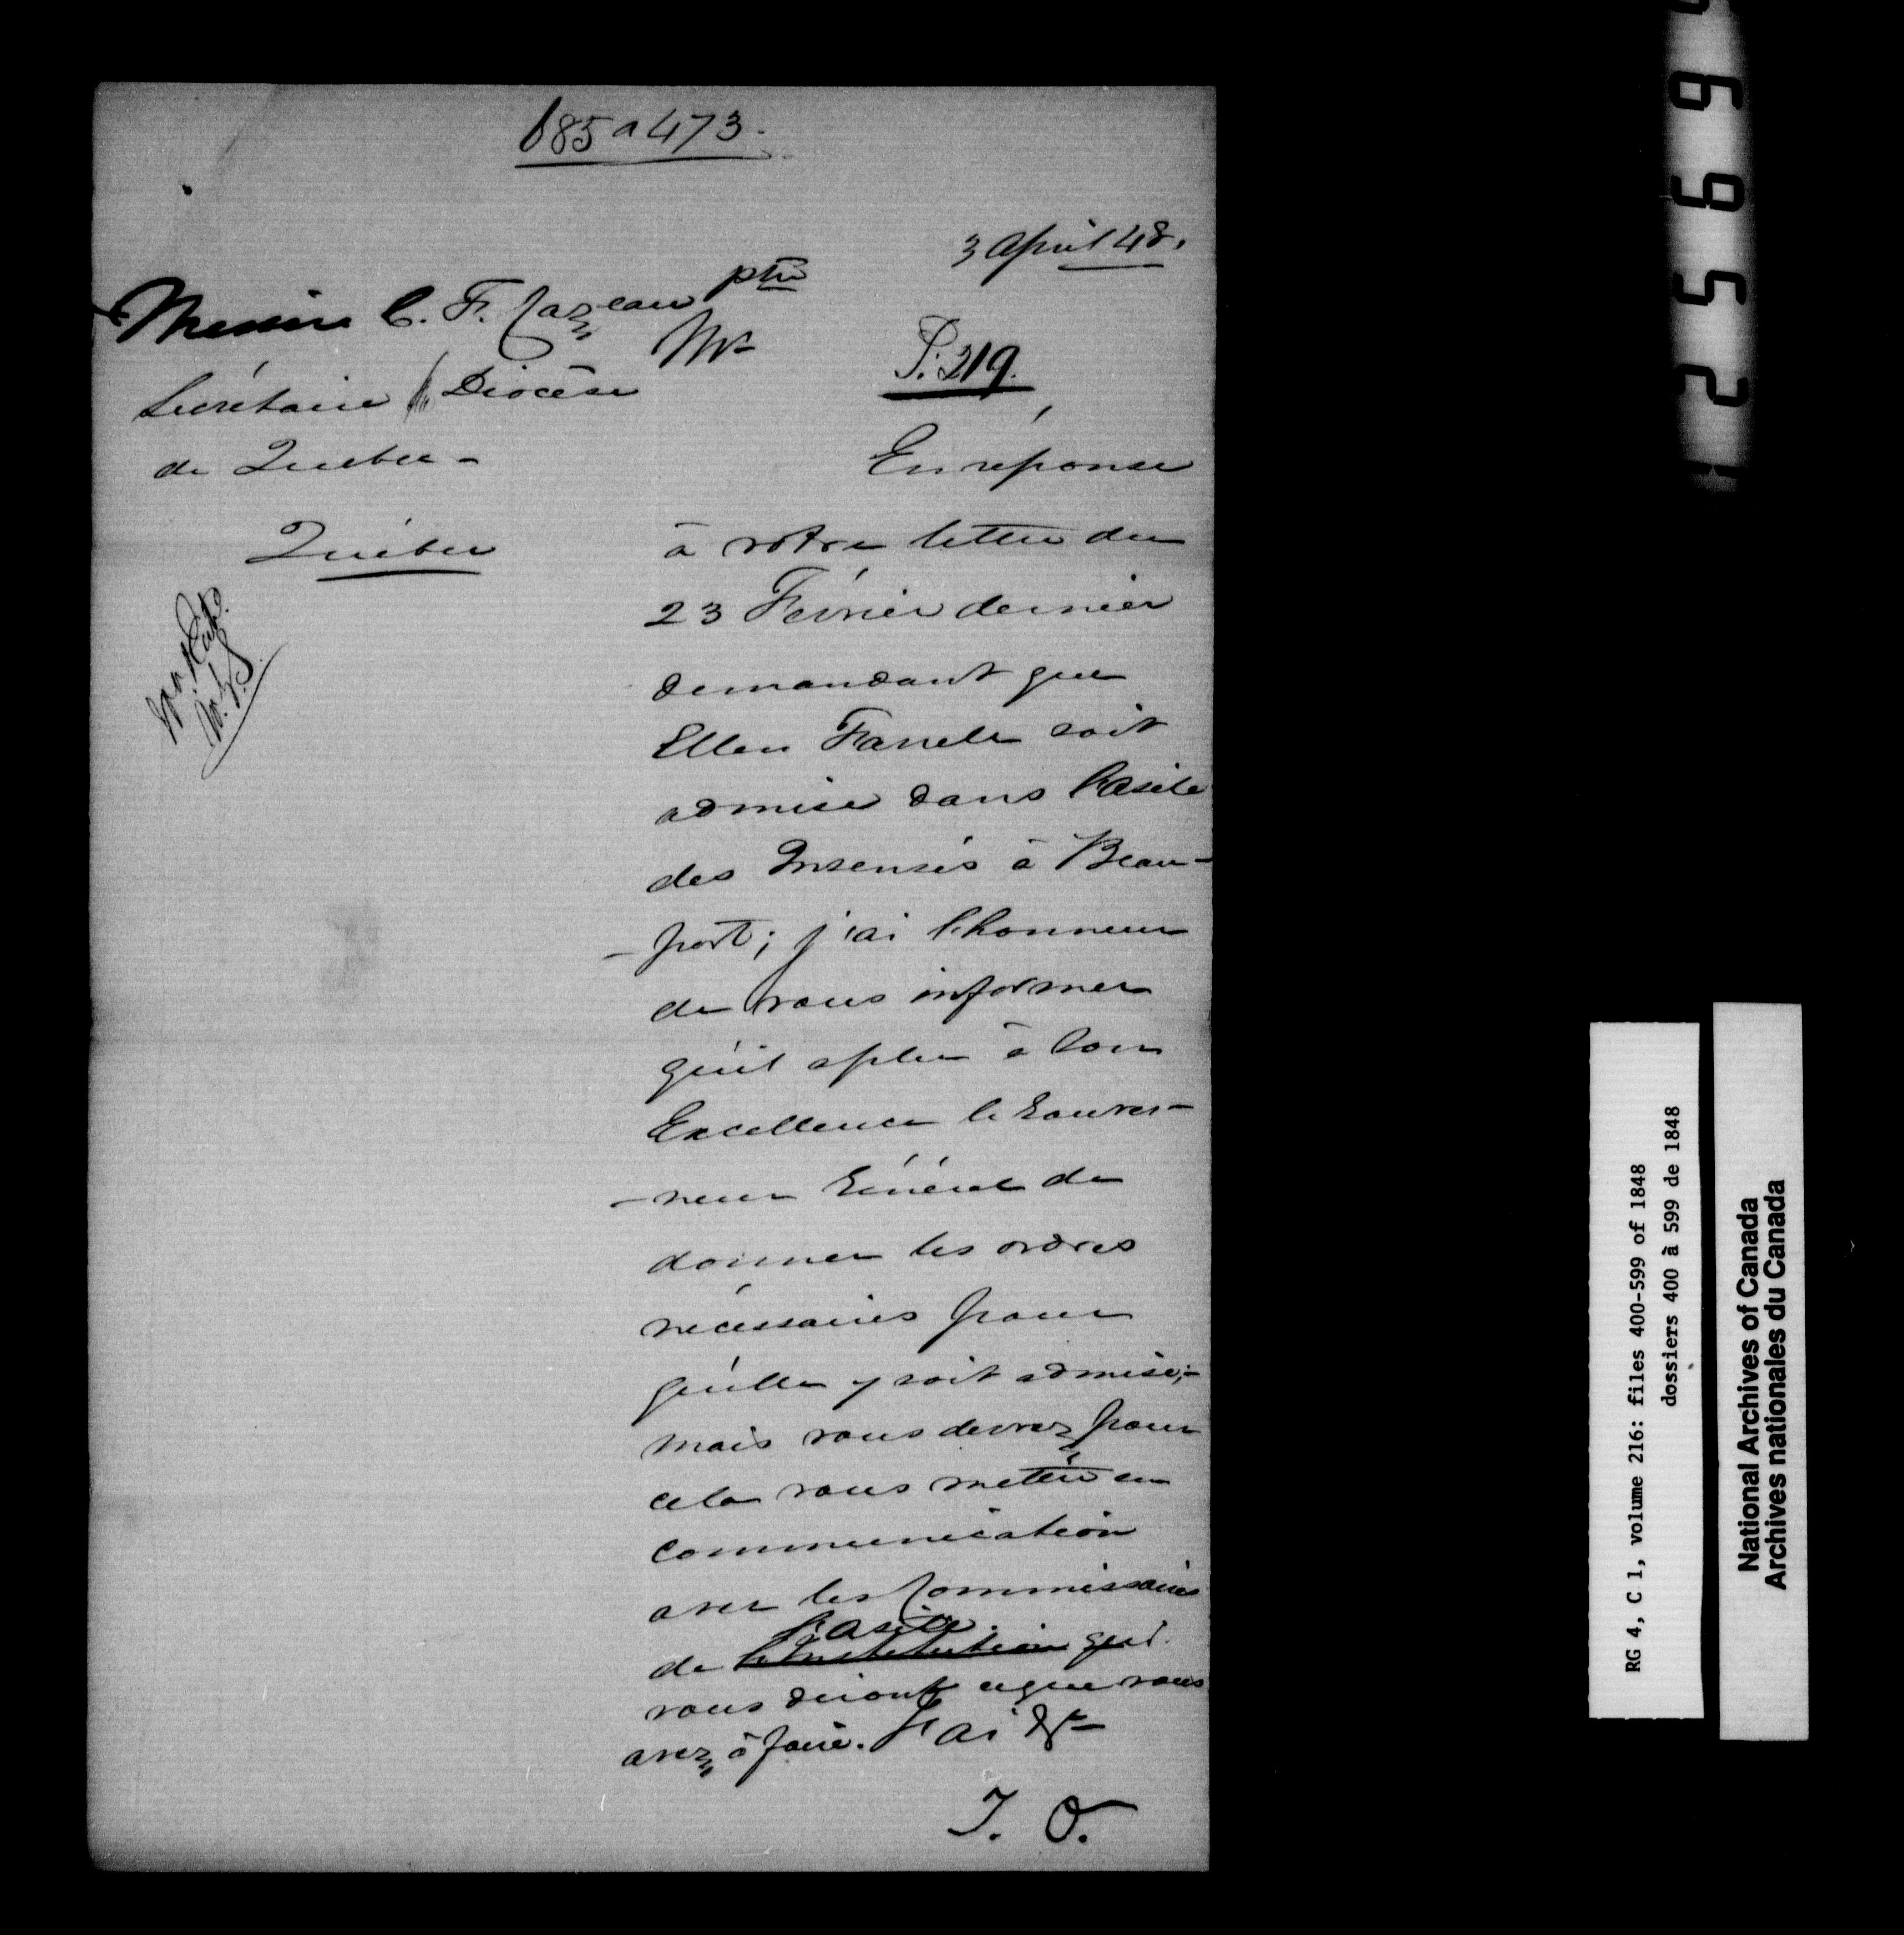 685 a 473.
3 April 48.
Messire C. F. Cazeau ptre
Secrétaire Diocèse
de Quebec -
Québec
Mr
P. 219.
En réponse
à votre lettre du
23 Février dernier
demandant que
Ellen soit
admise dans l'asile
des Insensés à Beau-
-port; j'ai l'honneur
de vous informer
qu'il a plu à Son
Excellence le Gouver-
-neur Général de
donner les ordres
nécessaires pour
qu'elle y soit admise;-
mais vous devrez pour
cela vous mettre en
communication
avec les Commissaires
l'asile.
de l'Institution qui
vous diront ce que vous
avez à faire. J'ai &c
T. O.
25699
RG 4, C 1, volume 216: files 400-599 of 1848
dossiers 400 à 599 de 1848
National Archives of Canada
Archives nationales du Canada